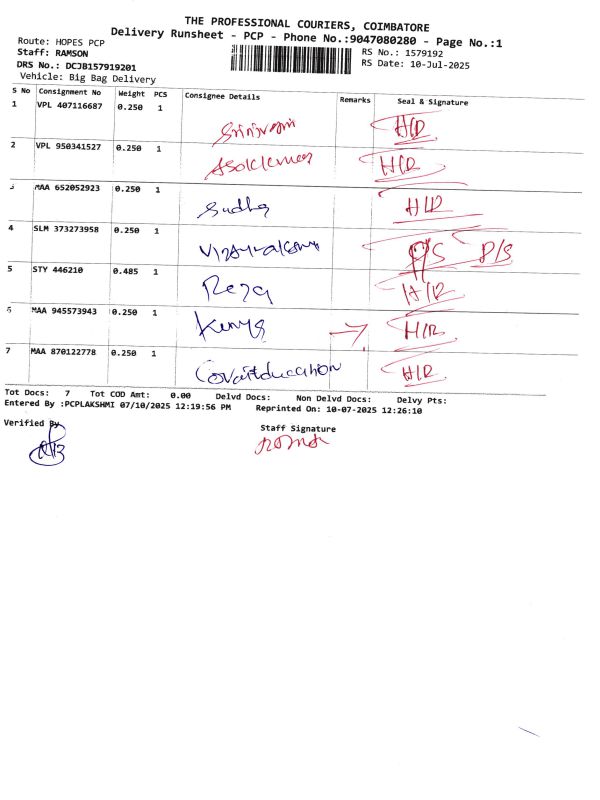 THE PROFESSIONAL COURIERS, COIMBATORE
Delivery Runsheet - PCP - Phone No.:9047080280 - Page No.:1
Route: HOPES PCP
Staff: RAMSON
DRS No.: DCJB157919201
Vehicle: Big Bag Delivery
RS No.: 1579192
RS Date: 10-Jul-2025
S No Consignment No Weight PCS Consignee Details Remarks Seal & Signature
1 VPL 407116687 0.250 1 H/R
2 VPL 950341527 0.250 1 H/R
3 MAA 652052923 0.250 1 Sudha H/R
4 SLM 373273958 0.250 1 P/S P/S
5 STY 446210 0.485 1 H/R
6 MAA 945573943 0.250 1 H/R
7 MAA 870122778 0.250 1 H/R
Tot Docs: 7 Tot COD Amt: 0.00 Delvd Docs: Non Delvd Docs: Delvy Pts:
Entered By :PCPLAKSHMI 07/10/2025 12:19:56 PM Reprinted On: 10-07-2025 12:26:10
Verified By
Staff Signature